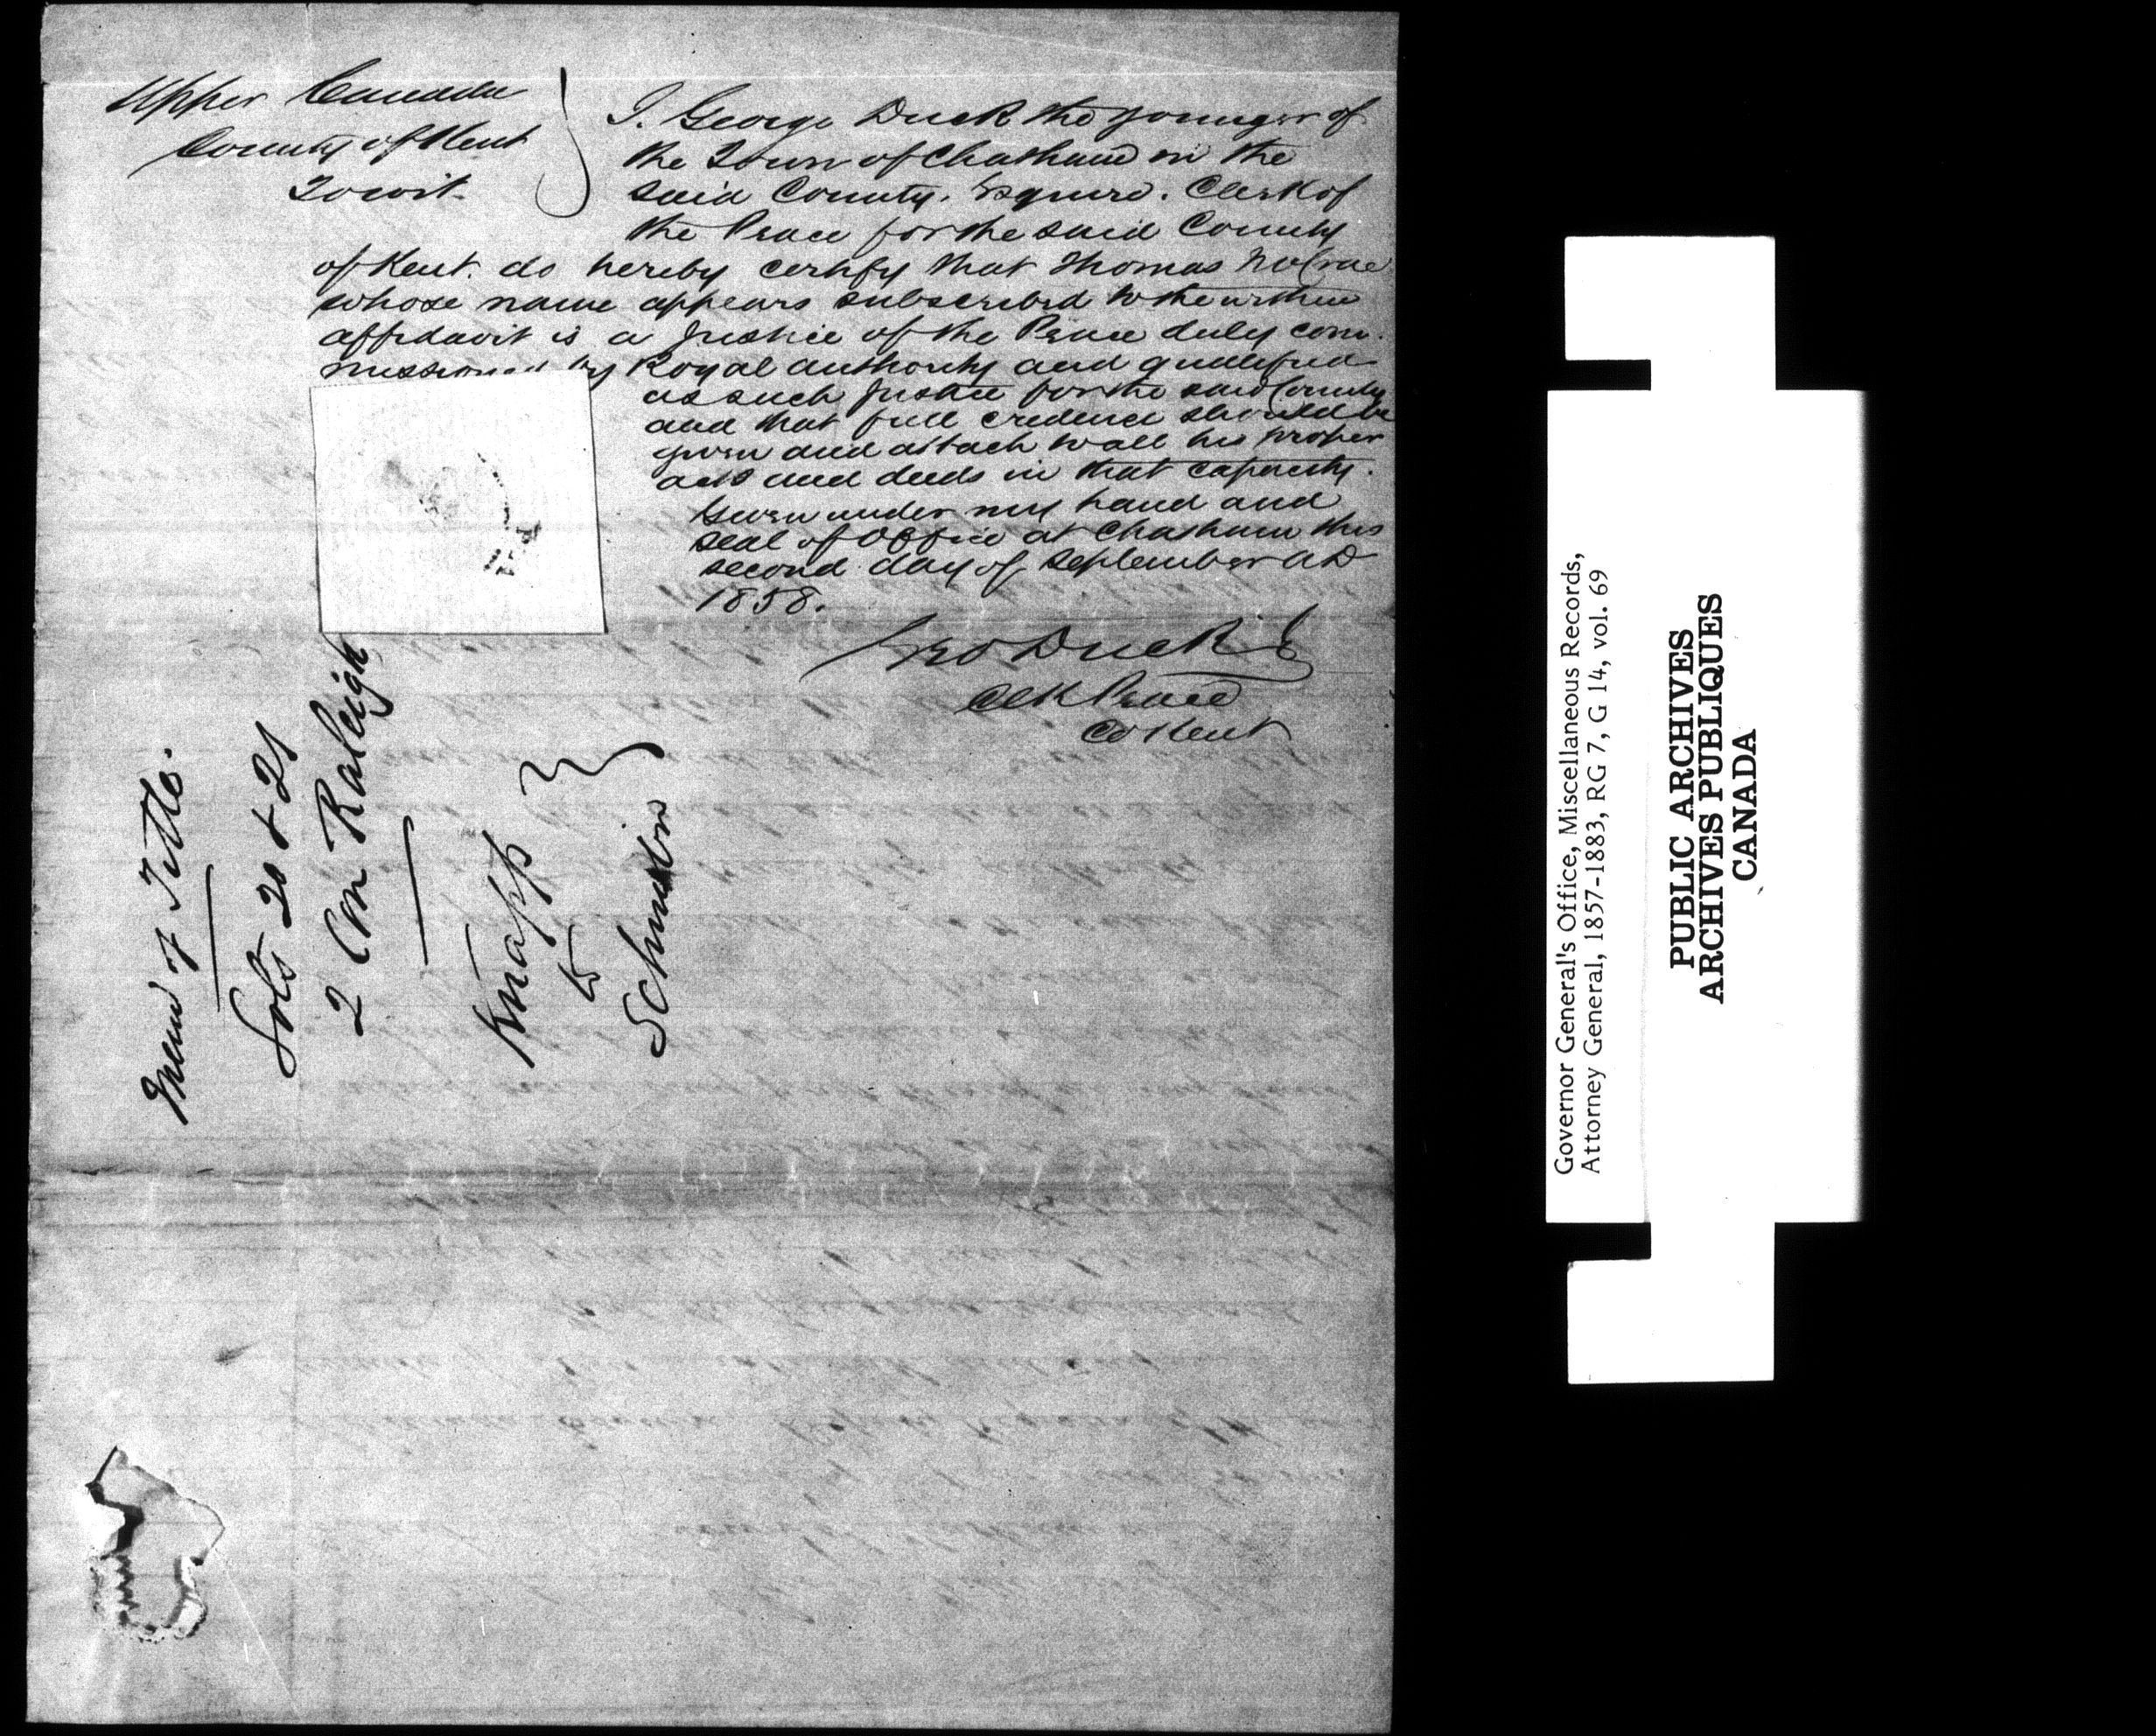 Upper Canada
County of Kent
To wit
I. George Duck the younger of
the Town of Chatham in the
said County. Esquire. Clerk of
the Peace for the said County
of Kent. do hereby certify that Thomas McCrae
whose name appears subscribed to the within
affidavit is a Justice of the Peace duly com-
missioned by Royal authority and qualified
as such Justice for the said County
and that full credence should be
given and attach to all his proper
acts and deeds in that capacity.
Given under my hand and
seal of Office at Chatham this
second day of September AD
1858.
Geo Duck
Clk Peace
Co Kent
Mem of Title.
Lots 20 & 21
2 Con Raleigh
Knapp
to
Governor General's Office, Miscellaneous Records,
Attorney General, 1857-1883, RG 7, G 14, vol. 69
PUBLIC ARCHIVES
ARCHIVES PUBLIQUES
CANADA